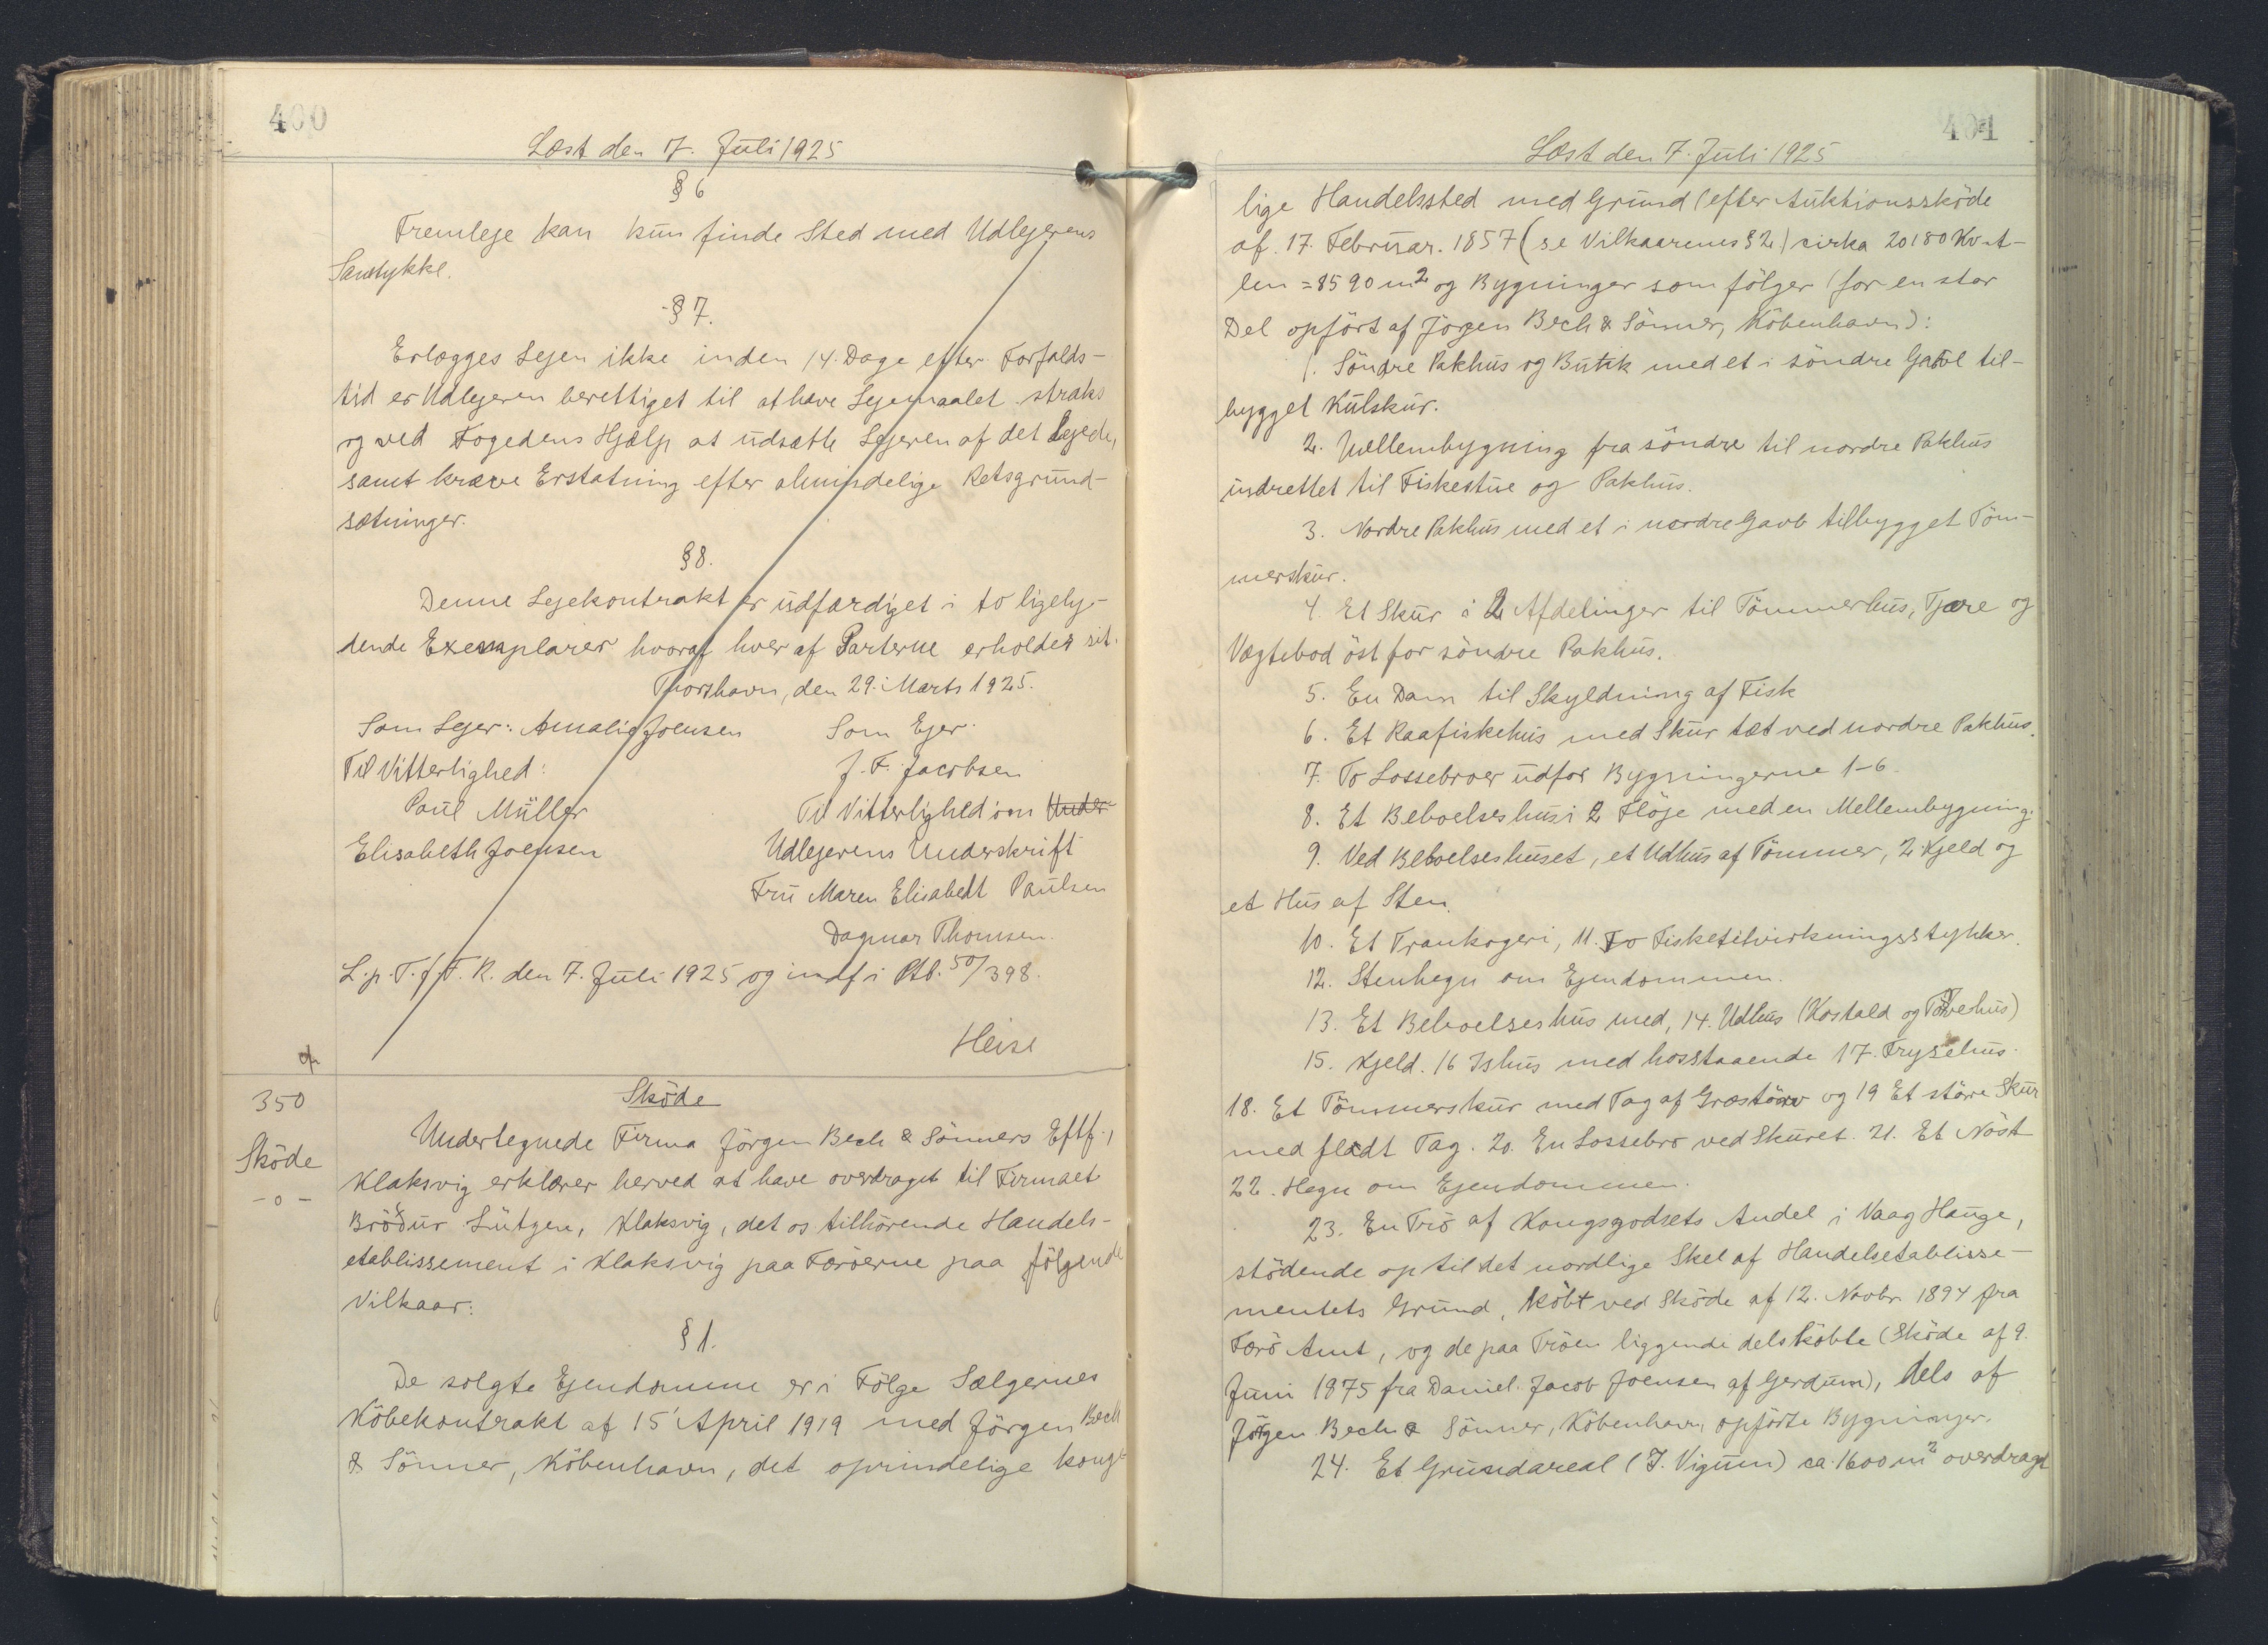 400
Læst den 7. Juli 1925
§ 6
Fremleje kan kun finde Sted med Udlejerens
Samtykke.
§ 7.
Erlægges Lejen ikke inden 14. Dage efter Forfalds-
tid er Udlejeren berettiget til at hæve Lejemaalet straks
og ved Fogedens Hjælp at udsætte Lejeren af det Lejede,
samt kræve Erstatning efter almindelige Retsgrund-
sætninger.
§ 8.
Denne Lejekontrakt er udfærdiget i to ligely-
dende Exemplarer hvoraf hver af Parterne erholder sit.
Thorshavn, den 29. Marts 1925.
Som Lejer: Amalie Joensen Som Ejer:
Til Vitterlighed: J. F. Jacobsen
Paul Müller Til Vitterlighed om Under-
Elisabeth Joensen Udlejerens Underskrift
Fru Maren Elisabeth Paulsen
Dagmar Thomsen.
L. p. T. f. F. R. den 7. Juli 1925 og indf i Ptb. 50/398.
Heise
350
Sköde
-o-
Sköde
Undertegnede Firma Jörgen Bech & Sönners Eftf.,
Klaksvig erklærer herved at have overdraget til Firmaet
Bröður Lützen, Klaksvig, det os tilhörende Handels-
etablissement i Klaksvig paa Færöerne paa fölgende
Vilkaar:
§ 1.
De solgte Ejendomme er i Fölge Sælgernes
Köbekontrakt af 15' April 1919 med Jörgen Bech
& Sönner, Köbenhavn, det oprindelige konge-
401
Læst den 7. Juli 1925
lige Handelssted med Grund (efter Auktionssköde
af 17. Februar. 1857 (se Vilkaarenes § 2) cirka 20180 Kv. A-
len = 8590 m2 og Bygninger som fölger (for en stor
Del opfört af Jörgen Bech & Sönner, Köbenhavn):
1. Söndre Pakhus og Butik med et i söndre Gavl til-
bygget Kulskur.
2. Mellembygning fra söndre til nordre Pakhus
indrettet til Fiskestue og Pakhus.
3. Nordre Pakhus med et i nordre Gavl tilbygget Töm-
merskur.
4. Et Skur i 2 Afdelinger til Tömmerhus, Tjære og
Vægtebod öst for söndre Pakhus.
5. En Dam til Skyldning af Fisk
6. Et Raafiskehus med Skur tæt ved nordre Pakhus.
7. To Lossebroer udfor Bygningerne 1-6
8. Et Beboelseshus i 2 Flöje med en Mellembygning.
9. Ved Beboelseshuset, et Udhus af Tömmer, 2 Kjeld og
et Hus af Sten.
10. Et Trankogeri, 11. To Fisketilvirkningsstykker.
12. Stenhegn om Ejendommen.
13. Et Beboelseshus med, 14. Udhus (Kostald og Törvehus)
15. Kjeld. 16 Ishus med hosstaaende 17. Frysehus.
18. Et Tömmerskur med Tag af Græstörv og 19 Et större Skur
med fladt Tag. 20. En Lossebro ved Skuret. 21. Et Nöst
22. Hegn om Ejendommen.
23. En Trö af Kongsgodsets Andel i Vaag Hauge,
stödende op til det nordlige Skel af Handelsetablisse-
mentets Grund, köbt ved Sköde af 12. Novbr. 1894 fra
Færö Amt, og de paa Tröen liggende dels köbte (Sköde af 9.
Juni 1875 fra Daniel Jacob Joensen af Gerdum), dels af
Jörgen Bech & Sönner, Köbenhavn opförte Bygninger.
24. Et Grundareal (I. Vigum) ca. 1600 m2 overdraget